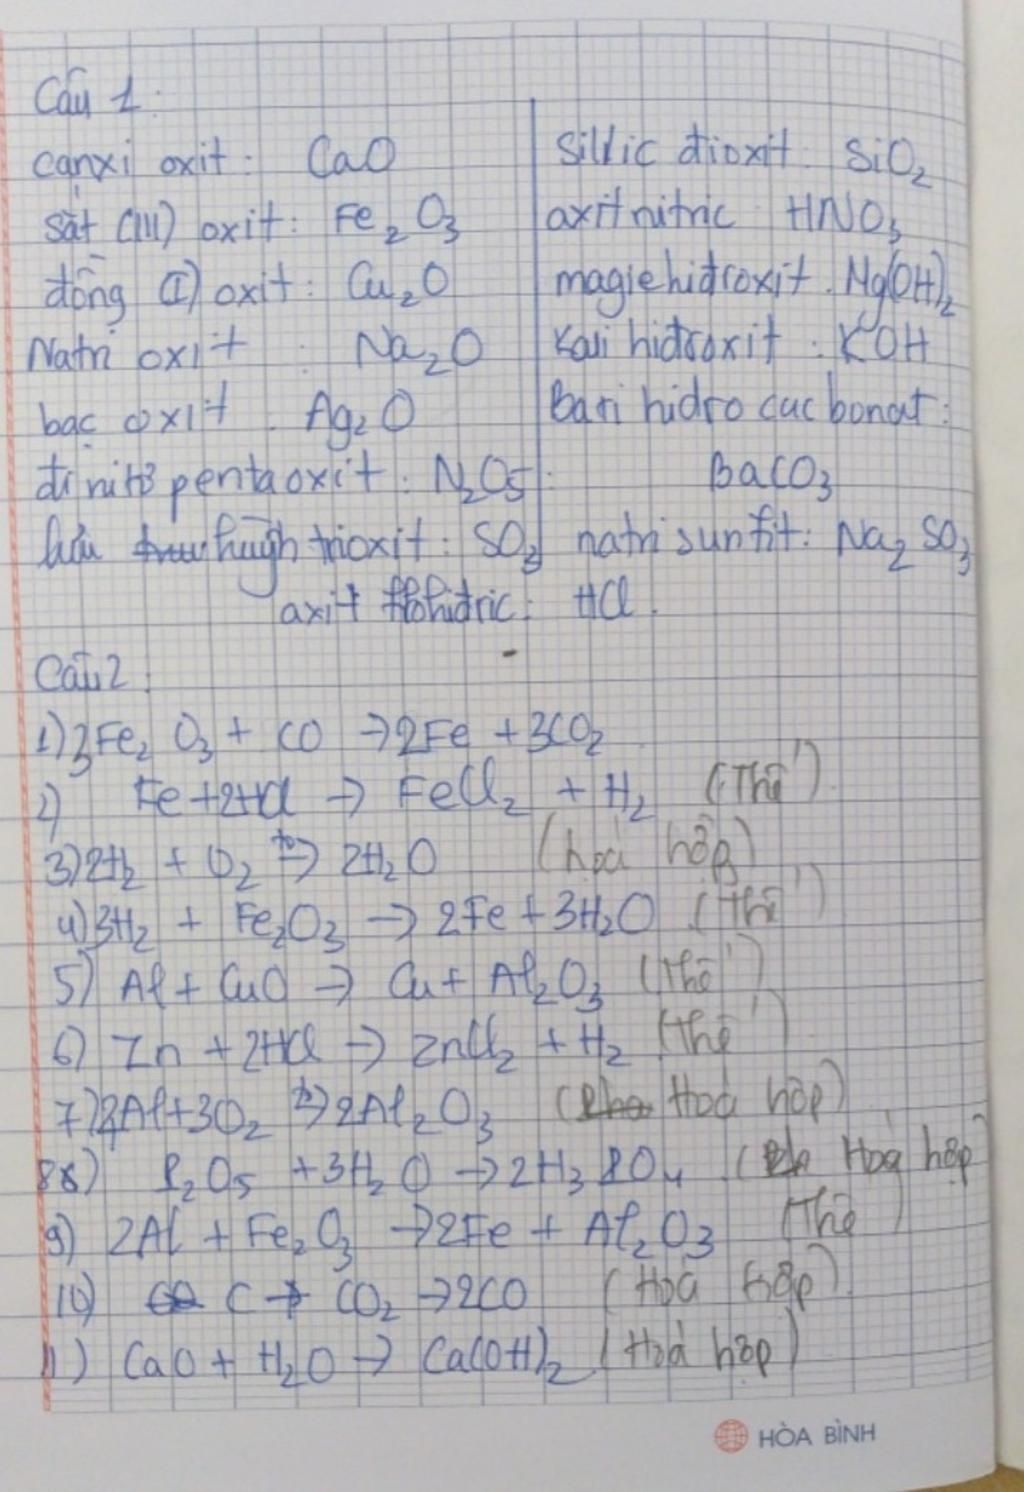 Câu 1:
canxi oxit: CaO
sắt (III) oxit: Fe2O3
đồng (I) oxit: Cu2O
Natri oxit : Na2O
bạc oxit : Ag2O
đi nitơ penta oxit : N2O5
lưu huỳnh trioxit : SO3
Sillic đioxit : SiO2
axit nitric HNO3
magie hiđroxit : Mg(OH)2
Kali hiđroxit : KOH
Bari hidro cac bonat :
BaCO3
natri sunfit : Na2SO3
axit hiđric : HCl.
Câu 2:
1) Fe2O3 + CO → 2Fe + 3CO2
2) Fe + 2HCl → FeCl2 + H2 (Thế)
3) 2H2 + O2 t°→ 2H2O (hoá hợp)
4) 3H2 + Fe2O3 → 2Fe + 3H2O (Thế)
5) Al + CuO → Cu + Al2O3 (Thế)
6) Zn + 2HCl → ZnCl2 + H2 (Thế)
7) 4Al + 3O2 t°→ 2Al2O3 (Hoá hợp)
8) P2O5 + 3H2O → 2H3PO4 (Hoá hợp
9) 2Al + Fe2O3 → 2Fe + Al2O3 (Thế)
10) C + CO2 → 2CO (Hoá hợp)
11) CaO + H2O → Ca(OH)2 (Hoá hợp)
HÒA BÌNH